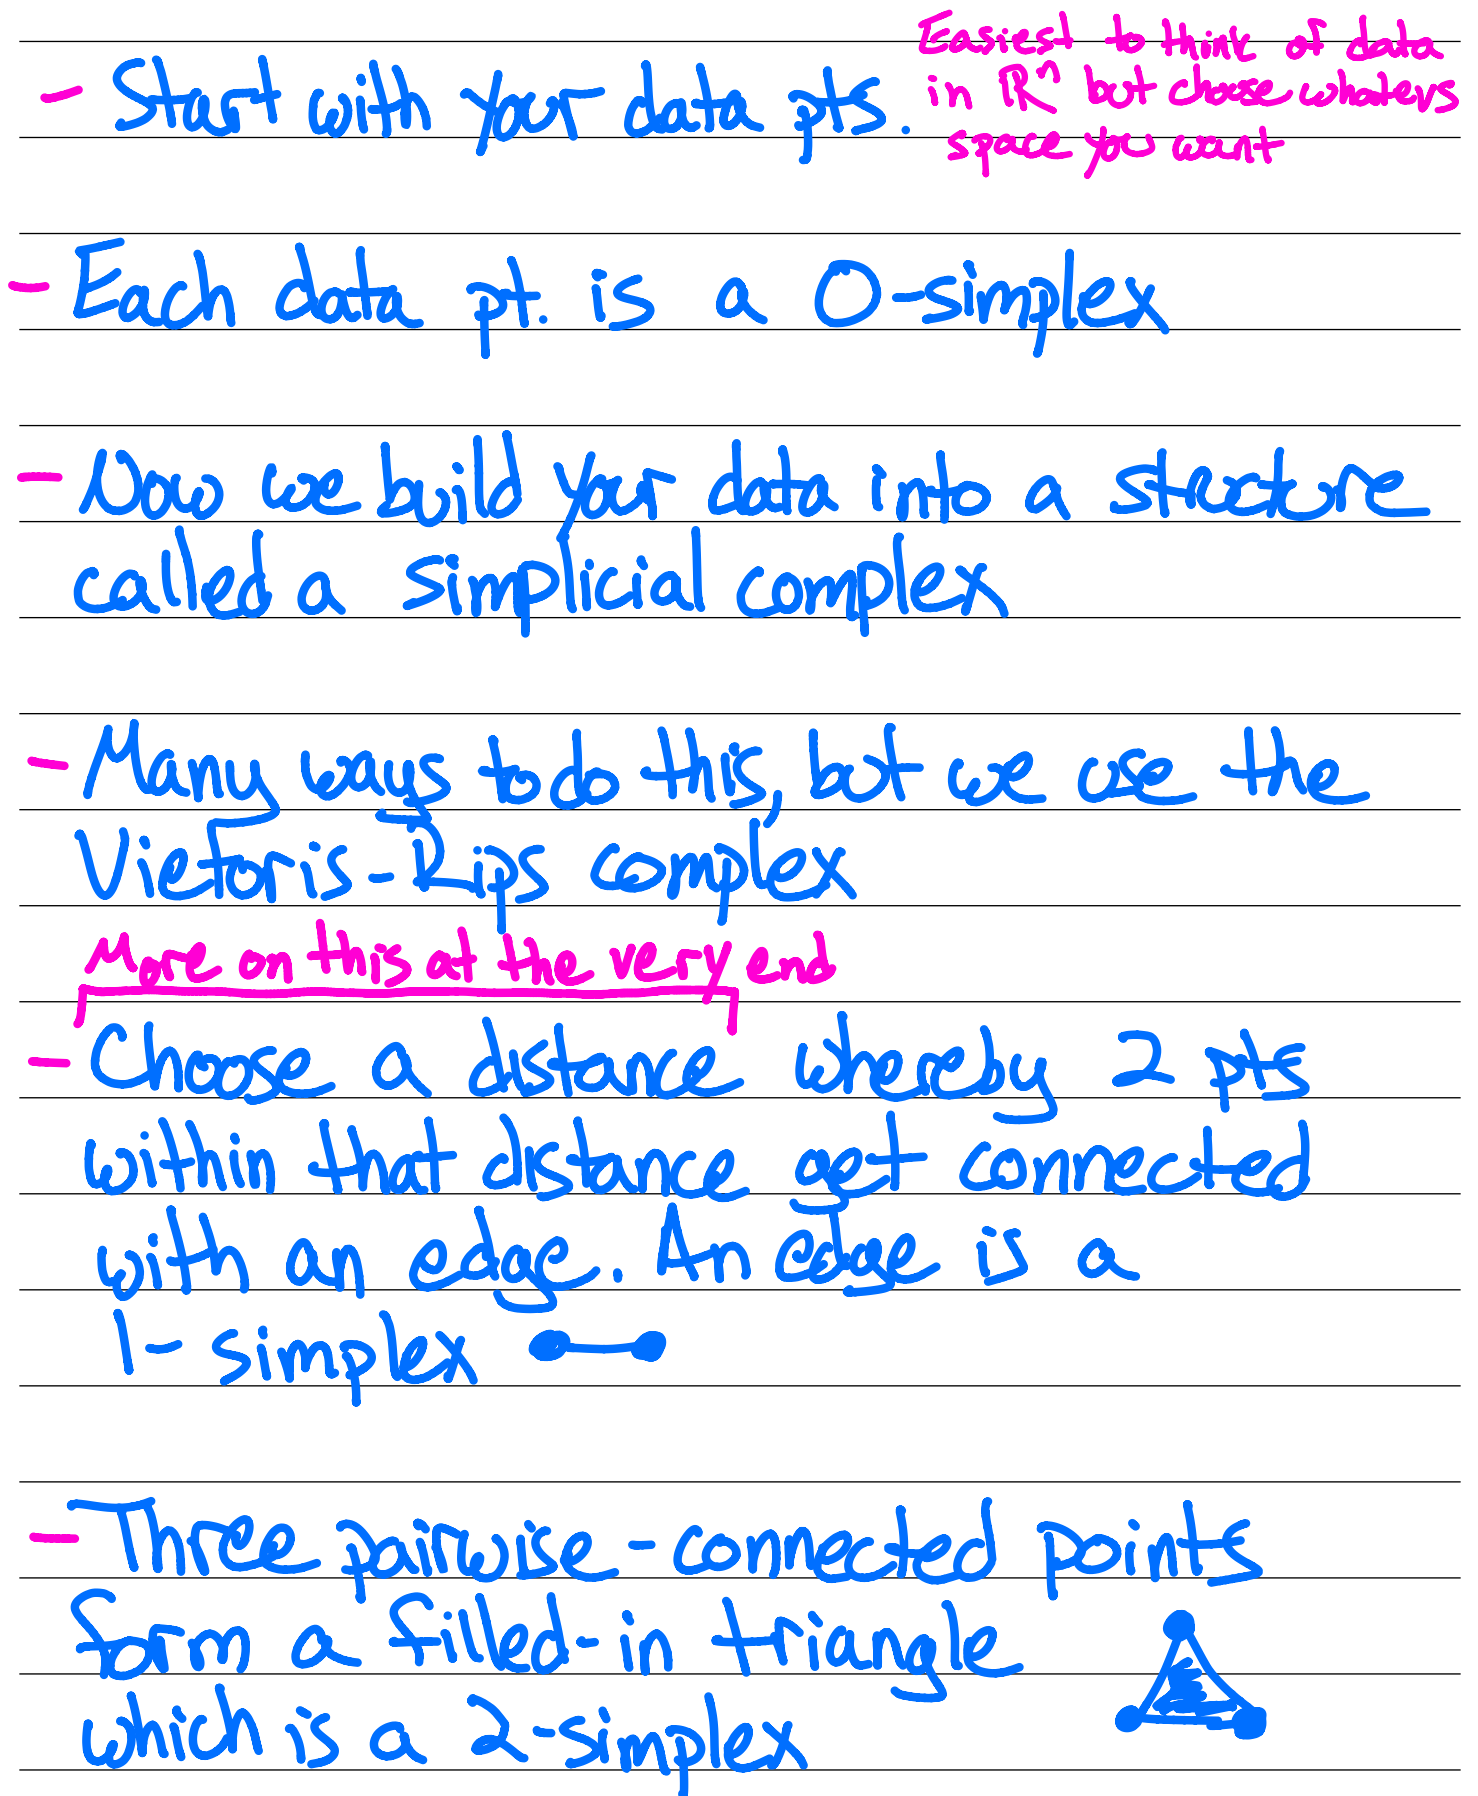 - Start with your data pts.
Easiest to think of data
in ℝⁿ but choose whatevs
space you want
- Each data pt. is a 0-simplex
- Now we build your data into a structure
called a simplicial complex
- Many ways to do this, but we use the
Vietoris-Rips complex
More on this at the very end
- Choose a distance whereby 2 pts
within that distance get connected
with an edge. An edge is a
1-simplex
- Three pairwise-connected points
form a filled-in triangle
which is a 2-simplex